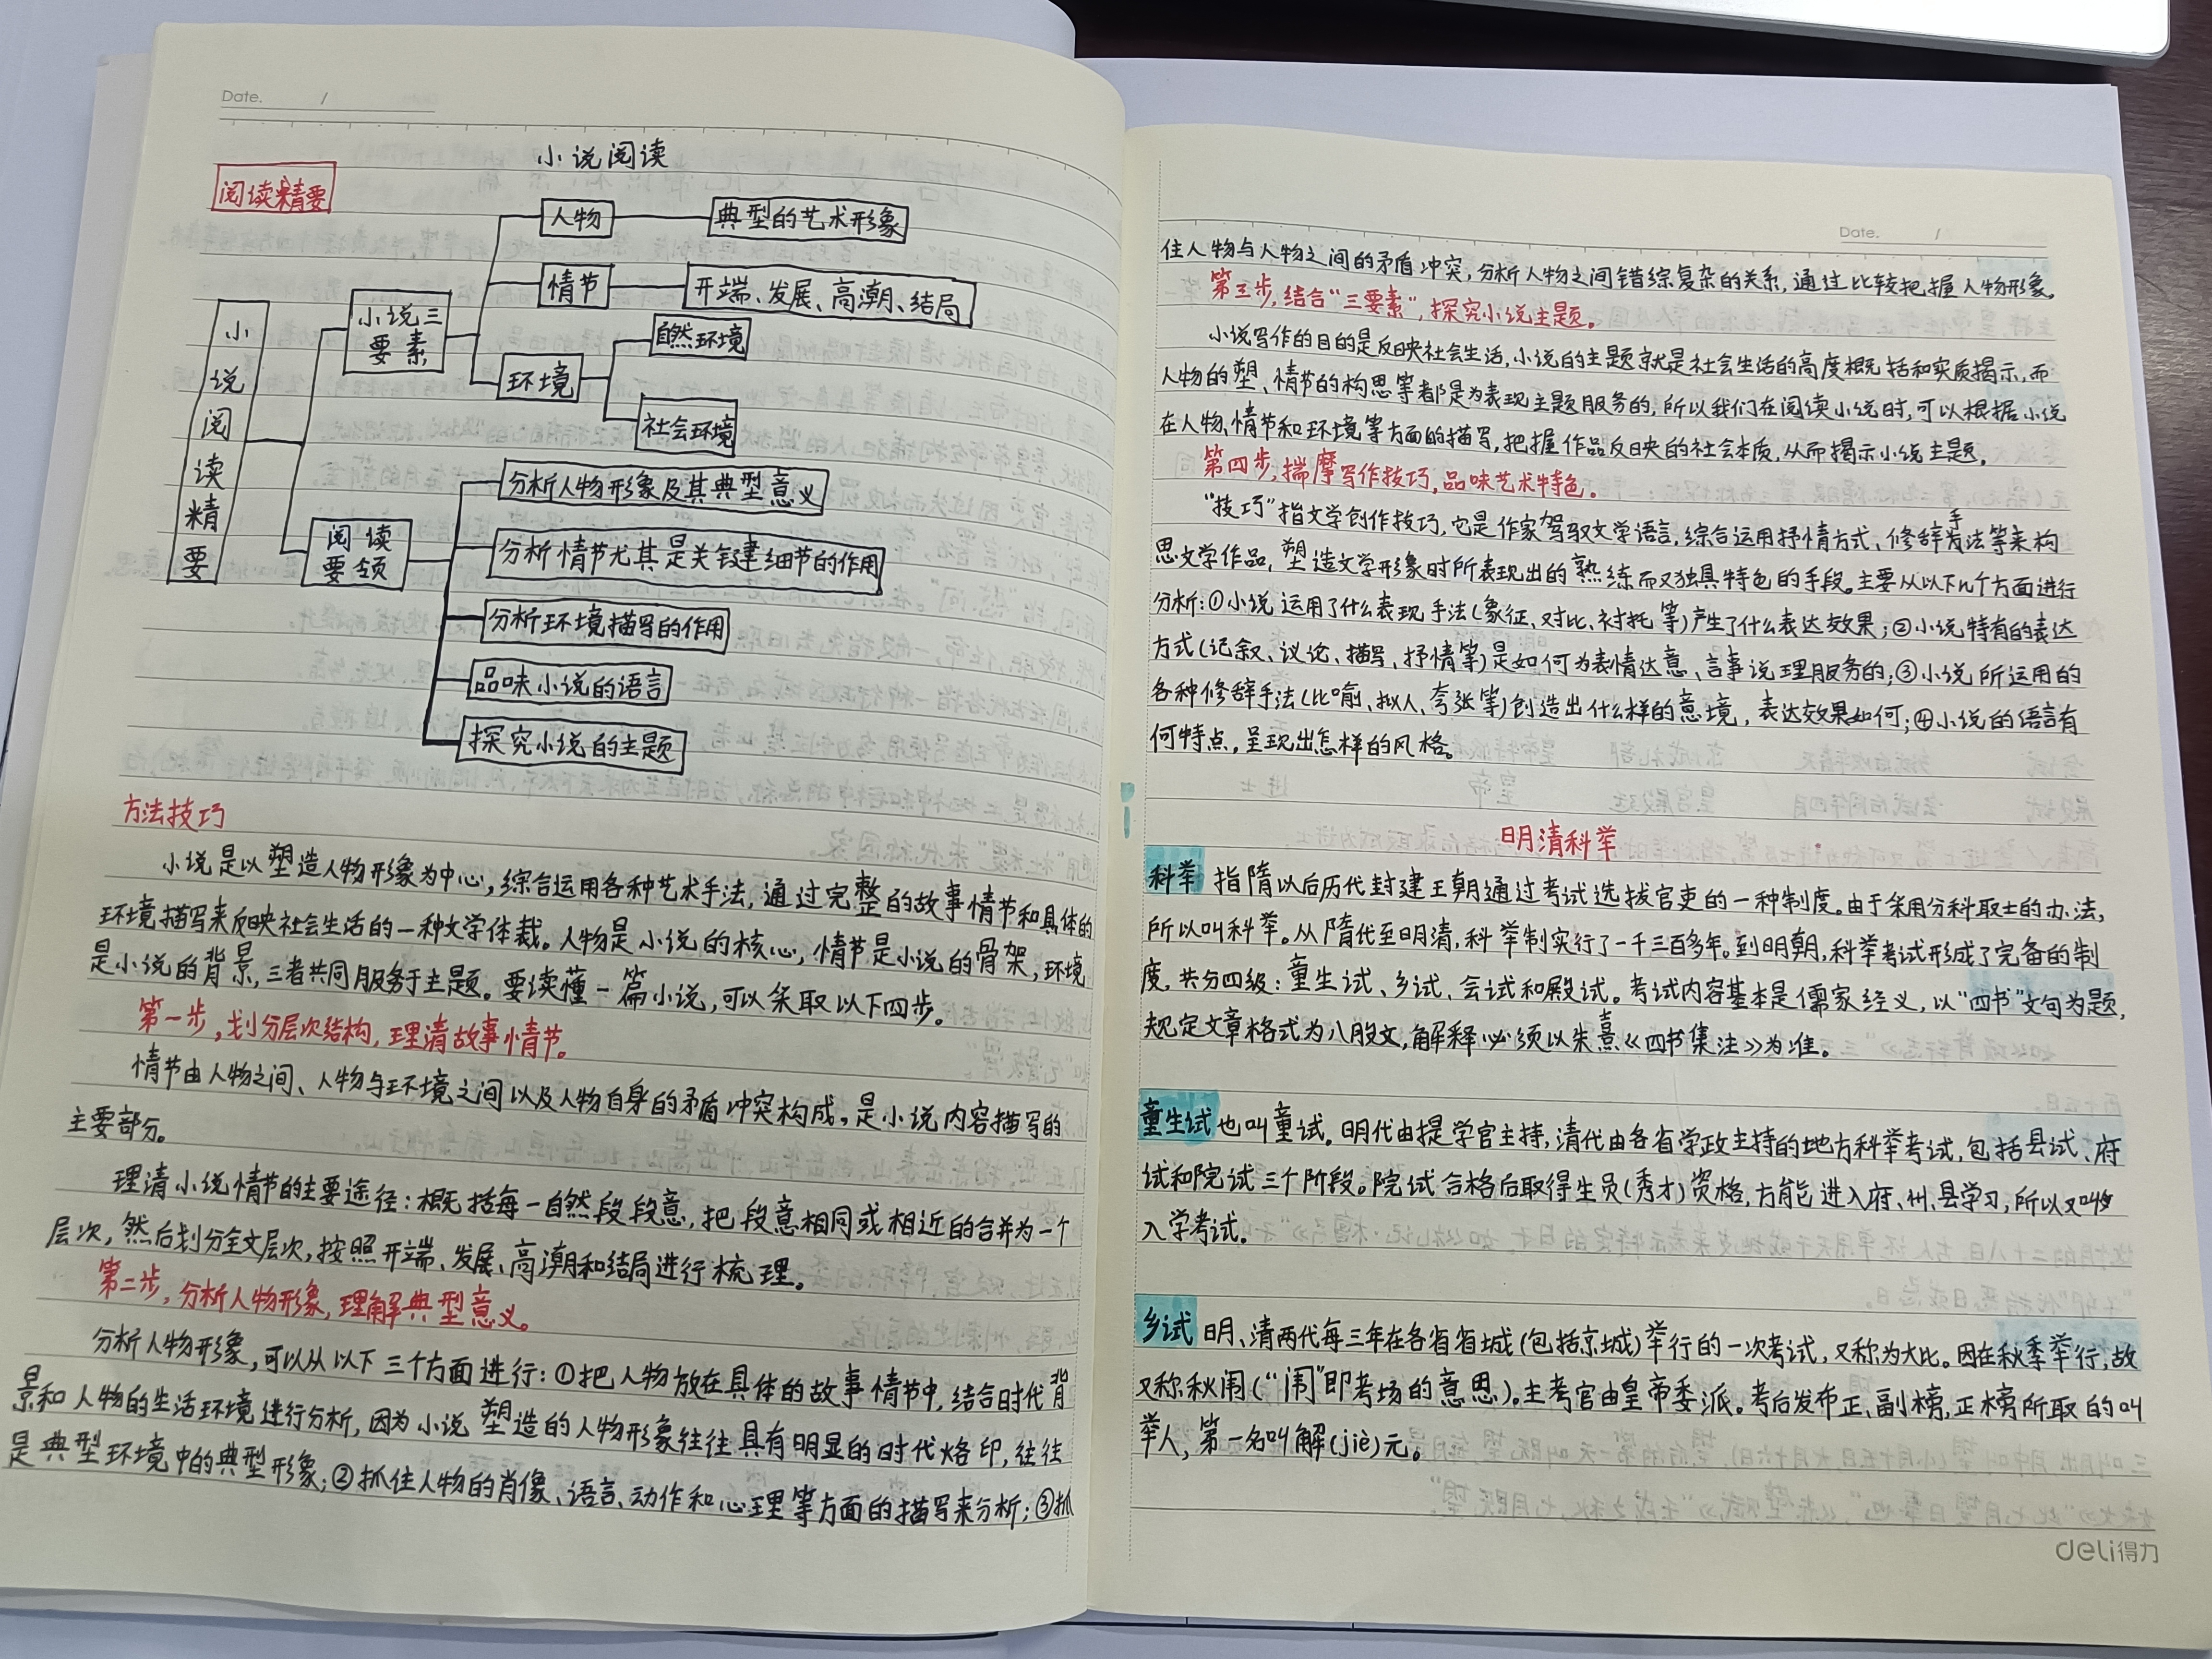 Date. /
小说阅读
阅读精要
小说阅读精要
小说三
要素
人物
典型的艺术形象
情节
开端、发展、高潮、结局
环境
自然环境
社会环境
阅读
要领
分析人物形象及其典型意义
分析情节尤其是关键细节的作用
分析环境描写的作用
品味小说的语言
探究小说的主题
方法技巧
小说是以塑造人物形象为中心,综合运用各种艺术手法,通过完整的故事情节和具体的
环境描写来反映社会生活的一种文学体裁。人物是小说的核心,情节是小说的骨架,环境
是小说的背景,三者共同服务于主题。要读懂一篇小说,可以采取以下四步。
第一步,划分层次结构,理清故事情节。
情节由人物之间、人物与环境之间以及人物自身的矛盾冲突构成,是小说内容描写的
主要部分。
理清小说情节的主要途径:概括每一自然段段意,把段意相同或相近的合并为一个
层次,然后划分全文层次,按照开端、发展、高潮和结局进行梳理。
第二步,分析人物形象,理解典型意义。
分析人物形象,可以从以下三个方面进行:①把人物放在具体的故事情节中,结合时代背
景和人物的生活环境进行分析,因为小说塑造的人物形象往往具有明显的时代烙印,往往
是典型环境中的典型形象;②抓住人物的肖像、语言、动作和心理等方面的描写来分析;③抓
Date. /
住人物与人物之间的矛盾冲突,分析人物之间错综复杂的关系,通过比较把握人物形象。
第三步,结合“三要素”,探究小说主题。
小说写作的目的是反映社会生活,小说的主题就是社会生活的高度概括和实质揭示,而
人物的塑、情节的构思等都是为表现主题服务的,所以我们在阅读小说时,可以根据小说
在人物、情节和环境等方面的描写,把握作品反映的社会本质,从而揭示小说主题。
第四步,揣摩写作技巧,品味艺术特色。
“技巧”指文学创作技巧,它是作家驾驭文学语言,综合运用抒情方式、修辞手法等来构
思文学作品,塑造文学形象时所表现出的熟练而又独具特色的手段。主要从以下几个方面进行
分析:①小说运用了什么表现手法(象征、对比、衬托等)产生了什么表达效果;②小说特有的表达
方式(记叙、议论、描写、抒情等)是如何为表情达意、言事说理服务的;③小说所运用的
各种修辞手法(比喻、拟人、夸张等)创造出什么样的意境,表达效果如何;④小说的语言有
何特点,呈现出怎样的风格。
明清科举
科举 指隋以后历代封建王朝通过考试选拔官吏的一种制度。由于采用分科取士的办法,
所以叫科举。从隋代至明清,科举制实行了一千三百多年。到明朝,科举考试形成了完备的制
度,共分四级:童生试、乡试、会试和殿试。考试内容基本是儒家经义,以“四书”文句为题,
规定文章格式为八股文,解释必须以朱熹《四书集注》为准。
童生试 也叫童试。明代由提学官主持,清代由各省学政主持的地方科举考试,包括县试、府
试和院试三个阶段。院试合格后取得生员(秀才)资格,方能进入府、州、县学习,所以又叫
入学考试。
乡试 明、清两代每三年在各省省城(包括京城)举行的一次考试,又称为大比。因在秋季举行,故
又称秋闱(“闱”即考场的意思)。主考官由皇帝委派。考后发布正、副榜,正榜所取的叫
举人,第一名叫解(jiè)元。
deli得力